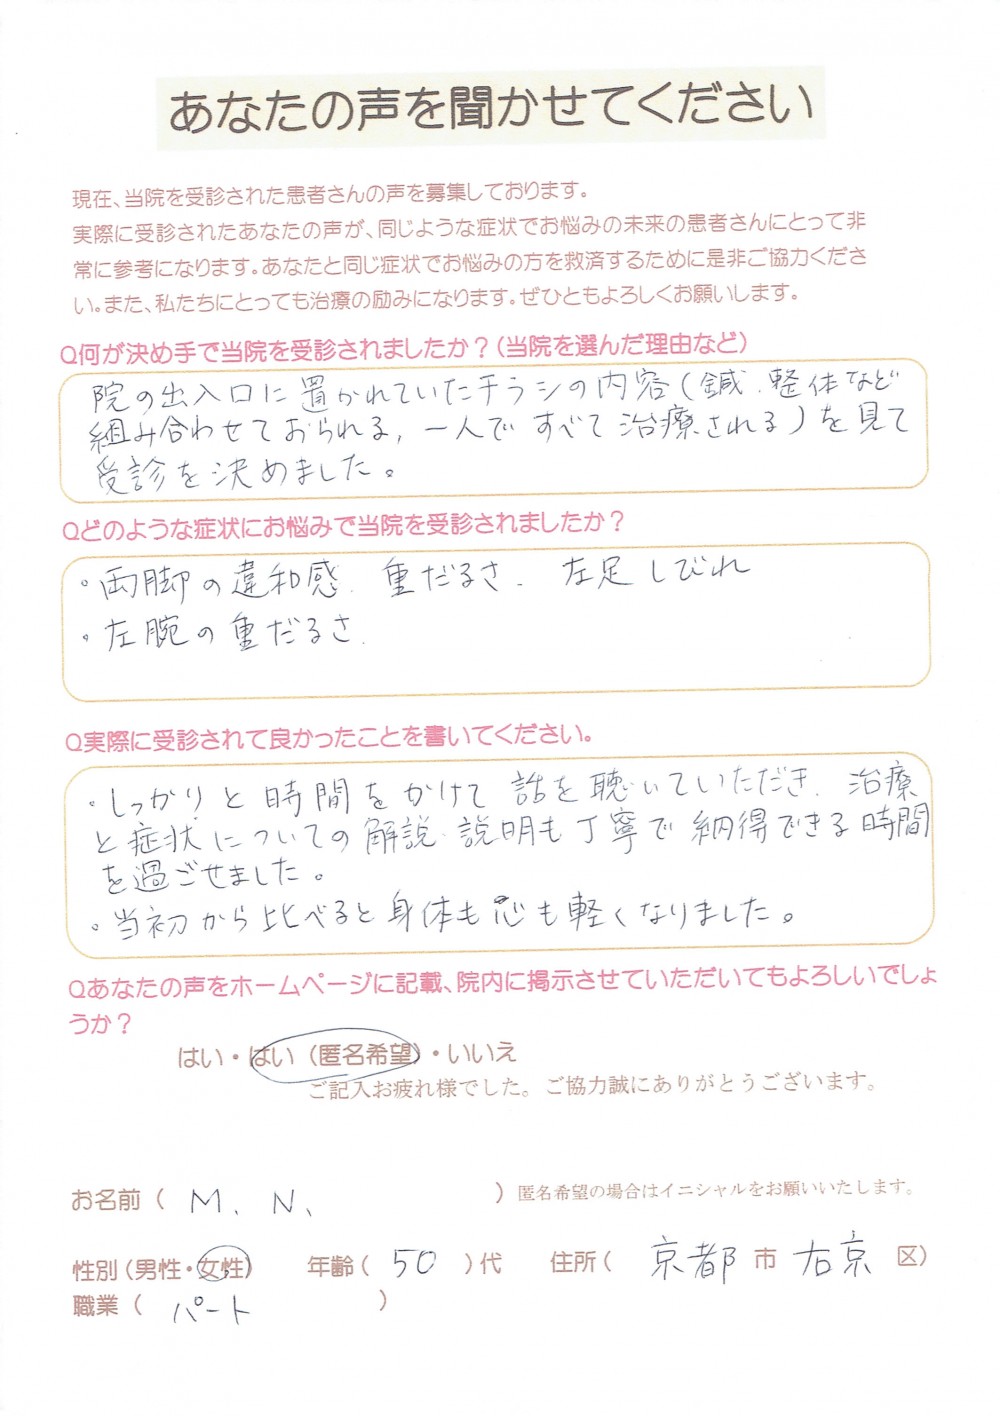 あなたの声を聞かせてください
現在、当院を受診された患者さんの声を募集しております。
実際に受診されたあなたの声が、同じような症状でお悩みの未来の患者さんにとって非
常に参考になります。あなたと同じ症状でお悩みの方を救済するために是非ご協力くださ
い。また、私たちにとっても治療の励みになります。ぜひともよろしくお願いします。
Q何が決め手で当院を受診されましたか？（当院を選んだ理由など）
院の出入口に置かれていたチラシの内容（鍼、整体など
組み合わせておられる，一人で すべて治療される）を見て
受診を決めました。
Qどのような症状にお悩みで当院を受診されましたか？
・両脚の違和感、重だるさ、左足しびれ
・左腕の重だるさ、
Q実際に受診されて良かったことを書いてください。
・しっかりと時間をかけて話を聴いていただき、治療
と症状についての解説・説明も丁寧で納得できる時間
を過ごせました。
・当初から比べると身体も心も軽くなりました。
Qあなたの声をホームページに記載、院内に掲示させていただいてもよろしいでしょ
うか？
はい・はい（匿名希望）・いいえ
ご記入お疲れ様でした。ご協力誠にありがとうございます。
お名前（ M、N、 ）匿名希望の場合はイニシャルをお願いいたします。
性別（男性・女性） 年齢（ 50 ）代 住所（ 京都 市 右京 区）
職業（ パート ）